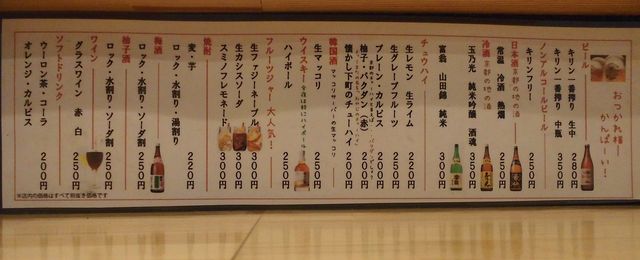 おつかれ様!
かんぱーい!
ビール
キリン一番搾り 生中 280円
キリン一番搾り 中瓶 390円
ノンアルコールビール
キリンフリー 250円
日本酒 京都の地の酒
常温 冷酒 熱燗 250円
冷酒 京都の地の酒
玉乃光 純米吟醸 酒魂 350円
富翁 山田錦 純米
チュウハイ
生レモン 生ライム 220円
生グレープフルーツ 250円
プレーン・カルピス 200円
柚子・梅(赤) 200円
懐かし下町のチューハイ 200円
韓国酒 マッコリサーバーの生マッコリ
生マッコリ 250円
ウイスキー
ハイボール 250円
フルーツジャー 大人気!
生ファジーネーブル 300円
生カシスソーダ 300円
スミノフレモネード 300円
焼酎
麦・芋
ロック・水割り・湯割り 220円
梅酒
ロック・水割り・ソーダ割 250円
柚子酒
ロック・水割り・ソーダ割 250円
ワイン
グラスワイン 赤 白 250円
ソフトドリンク
ウーロン茶・コーラ 200円
オレンジ・カルピス 200円
※店内の価格はすべて税抜き価格です